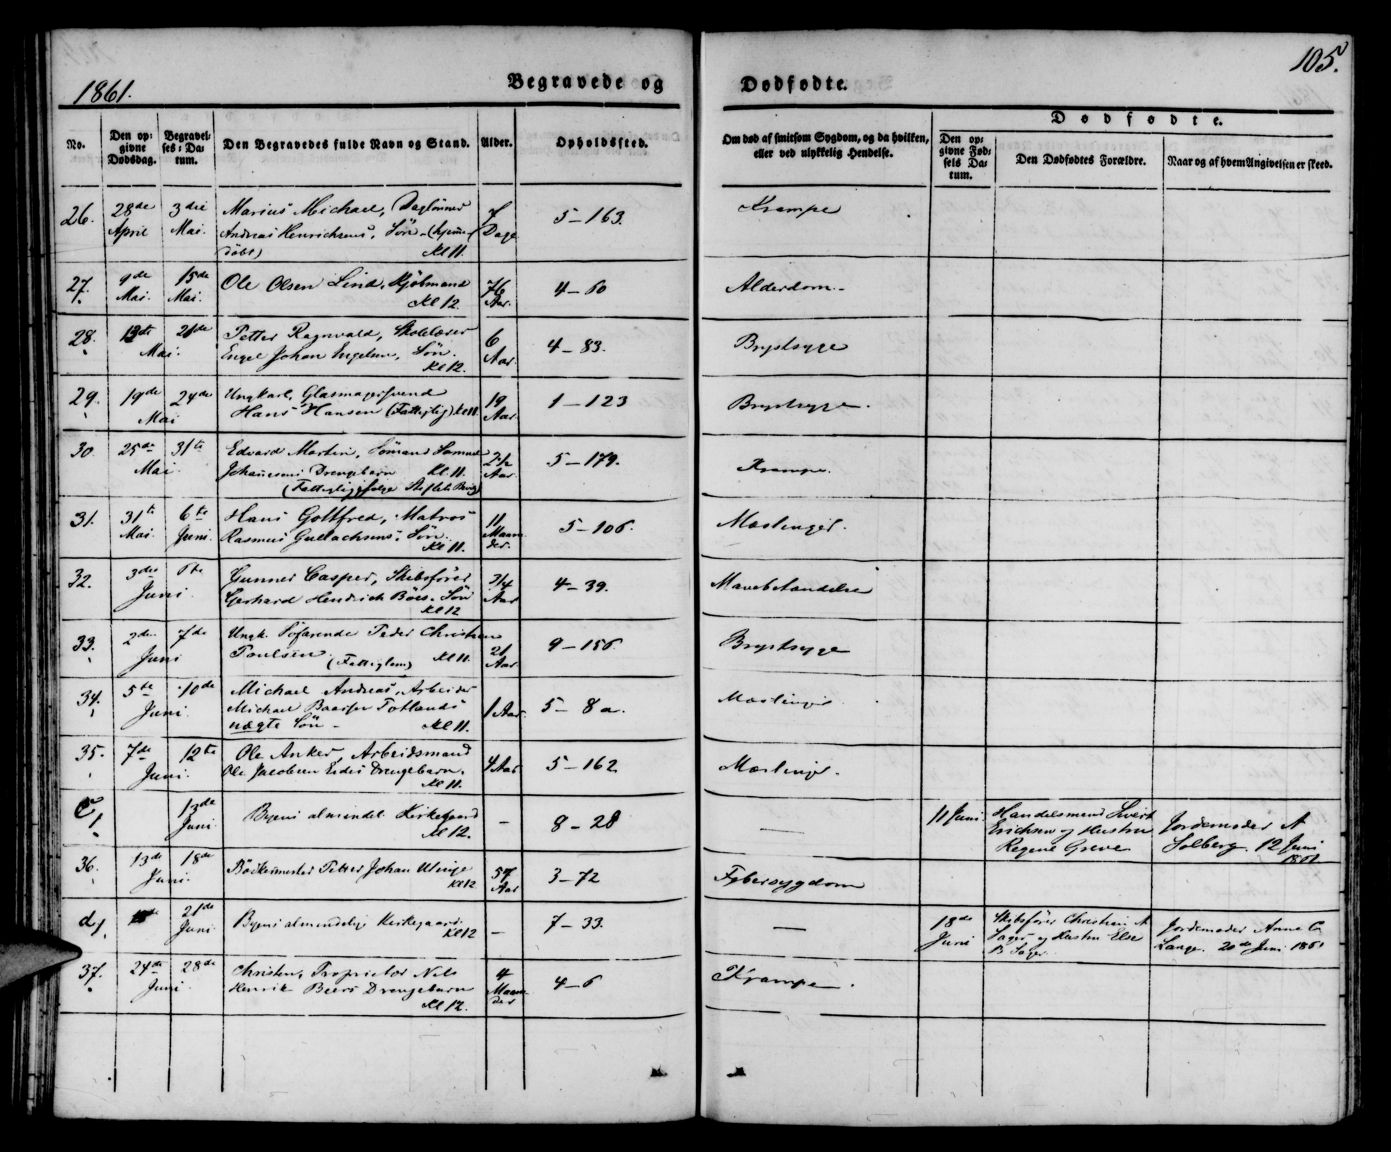 1861.
Begravede og Dødfødte.
105.
No.
Den opgivne Dødsdag.
Begravelses-Datum.
Den Begravedes fulde Navn og Stand.
Alder.
Opholdssted.
Om død af smitsom Sygdom, og da hvilken, eller ved ulykkelig Hendelse.
Dødfødte.
Den opgivne Fødsels Datum.
Den Dødfødtes Forældre.
Naar og af hvem Angivelsen er skeed.
26. 28de April 3die Mai. Marius Michael, Daglønner 7 Dage 5–163. Krampe
Andreas Henrichsens, Søn – (hjemme
døbt) Kl 11.
27. 9de Mai. 15de Mai. Ole Olsen Lind, Kjøbmand 76 Aar. 4–60 Alderdom.
Kl 12.
28. 13de 21de Mai. Petter Ragnvald, Skolelærer 6 Aar. 4–83. Brystsyge
Engel Johan Ingelsen, Søn.
Kl 12.
29. 19de 24de Mai Ungkarl, Glasmagersvend 19 Aar. 1–123 Brystsyge.
Hans Hansen (Fattiglig) Kl 11.
30 25de 31te Mai. Edvard Martin, Sømand Samuel 2½ Aar. 5–179. Krampe.
Johannesens Drengebarn Kl 11.
(Fattiglig
31. 31te Mai. 6te Juni. Hans Gottfred, Matros 11 Maaneder. 5–106. Mæslinger.
Rasmus Gullachsens, Søn.
Kl 11.
32. 3die 6te Juni Gunner Casper, Skibsfører 3/4 Aar 4–39. Mavebetændelse
Gerhard Hendrich Böes, Søn
Kl 12
33. 2den 7de Juni Ungk. Søfarende Peder Christian 21 Aar 9–156. Brystsyge
Poulsen (Fattiglem) Kl 11.
34. 5te 10de Juni. Michael Andreas, Arbeider 1 Aar. 5–8a. Mæslinger
Michael Totlands
uægte Søn – Kl 11.
35. 7de 12te Juni. Ole Anker, Arbeidsmand 4 Aar 5–162 Mæslinger.
Ole Jacobsen Eides Drengebarn.
Kl 11.
C1. 13de Juni. Byens almindel. Kirkegaard – 8–28 — 11 Juni Handelsmand Sivert Jordemoder A
Kl 12. Erichsen og Hustru Solberg. 12 Juni
Regine Greve 1861
36. 13de 18de Juni. Bødkermester Petter Johan 57 Aar 3–72 Febersygdom
Kl 12
d1. 21de Juni Byens almindelige Kirkegaard. – 7–33. — 18de Juni Skibsfører Christian A Jordemoder Anne C
Kl 12 og Hustru Else Lange. 20de Juni 1861
37. 24de 28de Juni. Christen, Proprietær Nils 4 Maaneder 4–6 Krampe.
Henrik Beers Drengebarn
Kl 12.